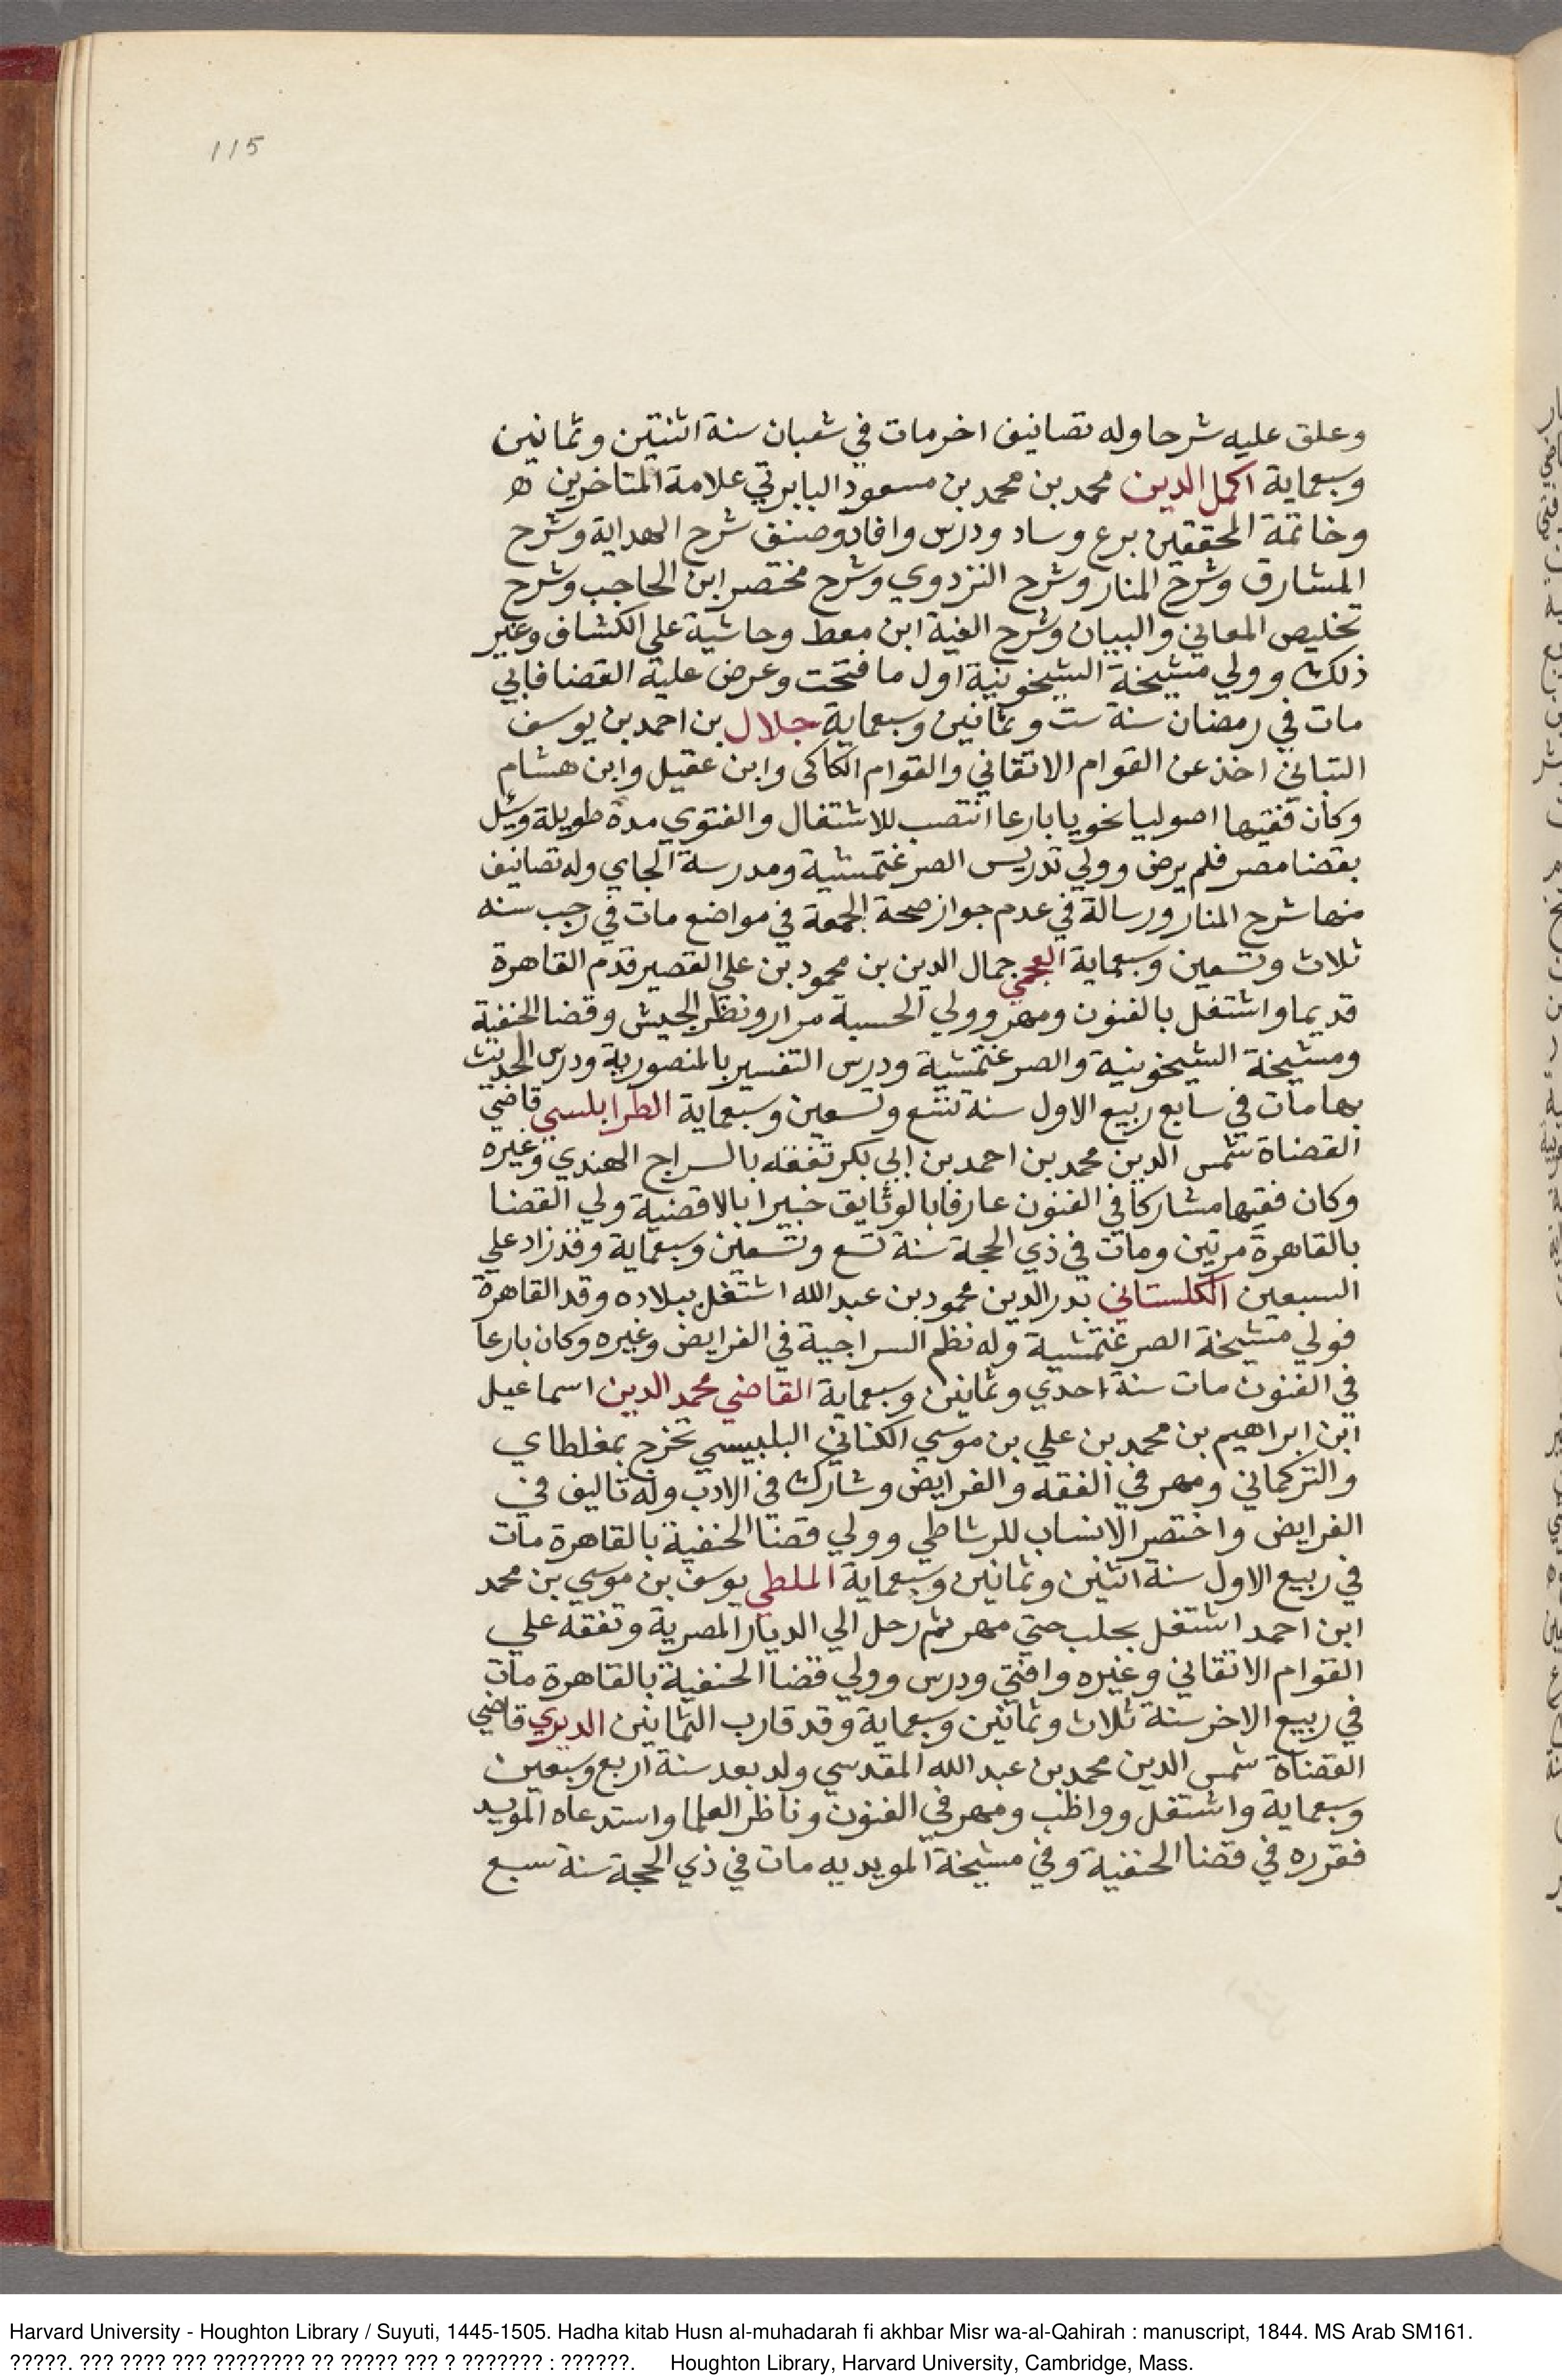 115
وعلق عليه شرحا وله تصانيف اخر مات في شعبان سنة اثنتين وثمانين
وسبعماية اكمل الدين محمد بن محمد بن مسعود البابرتي علامة المتاخرين ه
وخاتمة المحققين برع وساد ودرس وافاد وصنف شرح الهداية وشرح
المشارق وشرح المنار وشرح النزدوي وشرح مختصر ابن الحاجب وشرح
تخليص المعاني والبيان وشرح الفية ابن معط وحاشية علي الكشاف وغير
ذلك وولي مشيخة الشيخونية اول ما فتحت وعرض عليه القضا فابي
مات في رمضان سنة ست وثمانين وسبعماية جلال بن احمد بن يوسف
التباني اخذ عن القوام الاتقاني والقوام الكاكي وابن عقيل وابن هشام
وكان فقيها اصوليا نحويا بارعا انتصب للاشتغال والفتوي مدة طويلة وسئل
بقضا مصر فلم يرض وولي تدريس الصرغتمشية ومدرسة الجاي وله تصانيف
منها شرح المنار ورسالة في عدم جواز صحة الجمعة في مواضع مات في رجب سنه
ثلاث وتسعين وسبعماية العجمي جمال الدين بن محمود بن علي القصير قدم القاهرة
قديما واشتغل بالفنون ومهر وولي الحسبة مرارا ونظر الجيش وقضا الحنفية
ومشيخة الشيخونية والصرغتمشية ودرس التفسير بالمنصورية ودرس الحديث
بها مات في سابع ربيع الاول سنة تسع وتسعين وسبعماية الطرابلسي قاضي
القضاة شمس الدين محمد بن احمد بن ابي بكر تفقه بالسراج الهندي وغيره
وكان فقيها مشاركا في الفنون عارفا بالوثايق خبيرا بالاقضية ولي القضا
بالقاهرة مرتين ومات في ذي الحجة سنة تسع وتسعين وسبعماية وقد زاد علي
السبعين الكلستاني بدر الدين محمود بن عبد الله اشتغل ببلاده وقد القاهرة
فولي مشيخة الصرغتمشية وله نظم السراجية في الفرايض وغيره وكان بارعا
في الفنون مات سنة احدي وثمانين وسبعماية القاضي محمد الدين اسماعيل
ابن ابراهيم بن محمد بن علي بن موسي الكناني البلبيسي تخرج بمغلطاي
والتركماني ومهر في الفقه والفرايض وشارك في الادب وله تاليف في
الفرايض واختصر الانساب للرشاطي وولي قضا الحنفية بالقاهرة مات
في ربيع الاول سنة اثنين وثمانين وسبعماية الملطي يوسف بن موسي بن محمد
ابن احمد اشتغل بحلب حتي مهر ثم رحل الي الديار المصرية وتفقه علي
القوام الاتقاني وغيره وافتي ودرس وولي قضا الحنفية بالقاهرة مات
في ربيع الاخر سنة ثلاث وثمانين وسبعماية وقد قارب الثمانين الديري قاضي
القضاة شمس الدين محمد بن عبد الله المقدسي ولد بعد سنة اربع وسبعين
وسبعماية واشتغل وواظب ومهر في الفنون وناظر العلما واستدعاه المويد
فقرره في قضا الحنفية وفي مشيخة المويديه مات في ذي الحجة سنة سبع
Harvard University - Houghton Library / Suyuti, 1445-1505. Hadha kitab Husn al-muhadarah fi akhbar Misr wa-al-Qahirah : manuscript, 1844. MS Arab SM161.
?????. ??? ???? ??? ???????? ?? ????? ??? ? ??????? : ??????. Houghton Library, Harvard University, Cambridge, Mass.